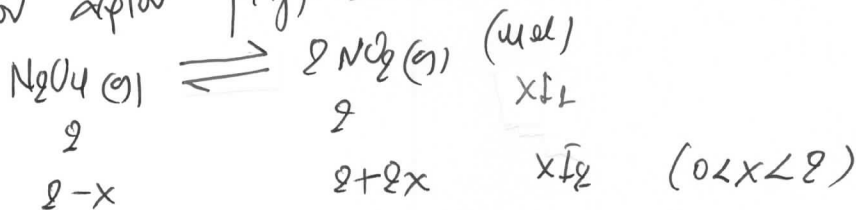 N2O4 (g) ⇌ 2 NO2 (g) (mol)
2 2 XI1
2-x 2+2x XI2 (0<x<2)